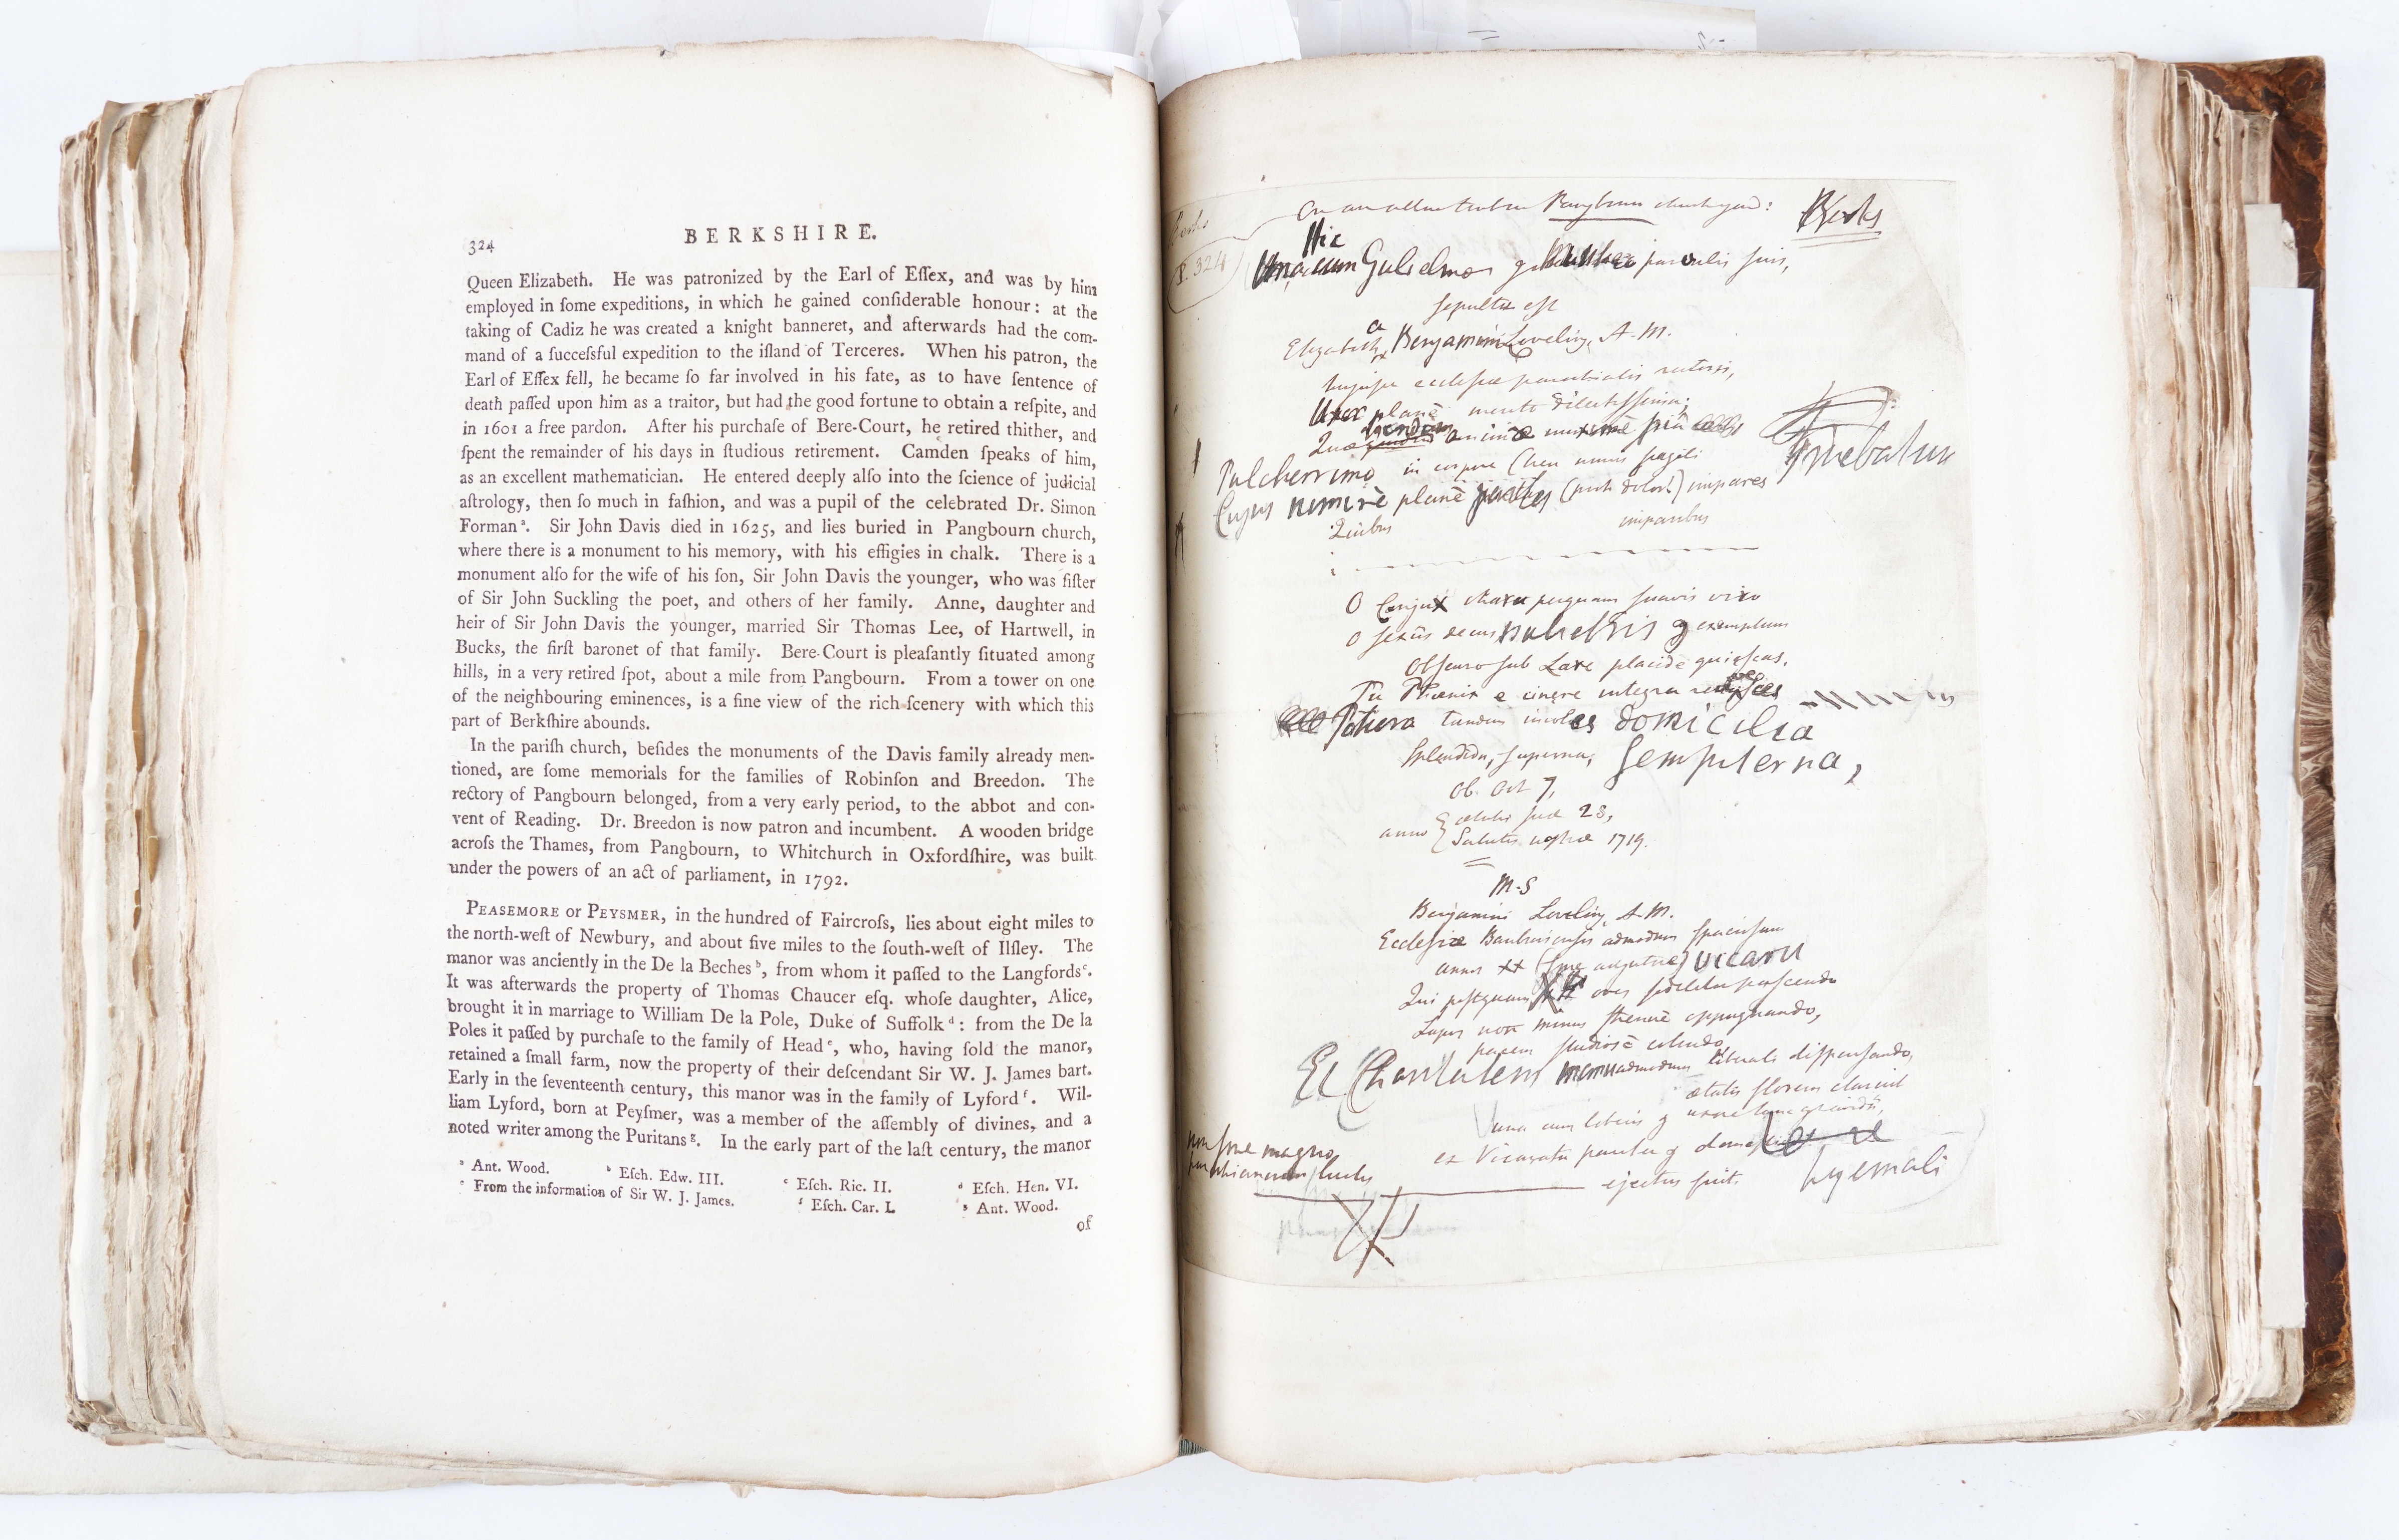 324
BERKSHIRE.
Queen Elizabeth. He was patronized by the Earl of Eſſex, and was by him
employed in ſome expeditions, in which he gained conſiderable honour: at the
taking of Cadiz he was created a knight banneret, and afterwards had the com-
mand of a ſucceſsful expedition to the iſland of Terceres. When his patron, the
Earl of Eſſex fell, he became ſo far involved in his fate, as to have ſentence of
death paſſed upon him as a traitor, but had the good fortune to obtain a reſpite, and
in 1601 a free pardon. After his purchaſe of Bere-Court, he retired thither, and
ſpent the remainder of his days in ſtudious retirement. Camden ſpeaks of him,
as an excellent mathematician. He entered deeply alſo into the ſcience of judicial
aſtrology, then ſo much in faſhion, and was a pupil of the celebrated Dr. Simon
Forman ª. Sir John Davis died in 1625, and lies buried in Pangbourn church,
where there is a monument to his memory, with his effigies in chalk. There is a
monument alſo for the wife of his ſon, Sir John Davis the younger, who was ſiſter
of Sir John Suckling the poet, and others of her family. Anne, daughter and
heir of Sir John Davis the younger, married Sir Thomas Lee, of Hartwell, in
Bucks, the firſt baronet of that family. Bere-Court is pleaſantly ſituated among
hills, in a very retired ſpot, about a mile from Pangbourn. From a tower on one
of the neighbouring eminences, is a fine view of the rich ſcenery with which this
part of Berkſhire abounds.
In the pariſh church, beſides the monuments of the Davis family already men-
tioned, are ſome memorials for the families of Robinſon and Breedon. The
rectory of Pangbourn belonged, from a very early period, to the abbot and con-
vent of Reading. Dr. Breedon is now patron and incumbent. A wooden bridge
acroſs the Thames, from Pangbourn, to Whitchurch in Oxfordſhire, was built
under the powers of an act of parliament, in 1792.
PEASEMORE or PEYSMER, in the hundred of Faircroſs, lies about eight miles to
the north-weſt of Newbury, and about five miles to the ſouth-weſt of Ilſley. The
manor was anciently in the De la Beches ᵇ, from whom it paſſed to the Langfords ᶜ.
It was afterwards the property of Thomas Chaucer eſq. whoſe daughter, Alice,
brought it in marriage to William De la Pole, Duke of Suffolk ᵈ: from the De la
Poles it paſſed by purchaſe to the family of Head ᵉ, who, having ſold the manor,
retained a ſmall farm, now the property of their deſcendant Sir W. J. James bart.
Early in the ſeventeenth century, this manor was in the family of Lyford ᶠ. Wil-
liam Lyford, born at Peyſmer, was a member of the aſſembly of divines, and a
noted writer among the Puritans ᵍ. In the early part of the laſt century, the manor
ª Ant. Wood. ᵇ Eſch. Edw. III. ᶜ Eſch. Ric. II. ᵈ Eſch. Hen. VI.
ᵉ From the information of Sir W. J. James. ᶠ Eſch. Car. I. ᵍ Ant. Wood.
of
On an altar tomb in Pangbourn church yard: Berks
P. 324
Hic
Una cum Gulielmo parvulis suis,
sepulta est
Elizabetha Benjamini Loveling, A. M.
hujusce ecclesiæ parochialis rectoris,
Uxor planè merito dilectissima;
Pulcherrimo in corpore (heu nimis fragili
Cujus nimirè planè (proh dolor!) impares
Quibus imparibus
O Conjux chara perquam suavis viro
O sexûs decus muliebris & exemplum
Obscuro sub Lare placidè quiescas,
Tu Phœnix e cinere integra
Potiora tandem incoles domicilia
Splendida, superna, Sempiterna,
Ob. Oct 7,
anno ætatis suæ 28,
Salutis nostræ 1719.
M.S
Benjamini Loveling, A. M.
Ecclesiæ Banburiensis admodum spaciosam
annos XX (sine adjutore) vicarii
Qui postquam oves fideliter pascendo
Lupos non minus strenuè oppugnando,
pacem studiosè colendo,
Et Charitatem manu admodum liberali dispensando,
ætatis florem
una cum liberis & uxore
ex Vicaratu pariter & domo
hyemali
non sine magno
parochianorum luctu
ejectus fuit.